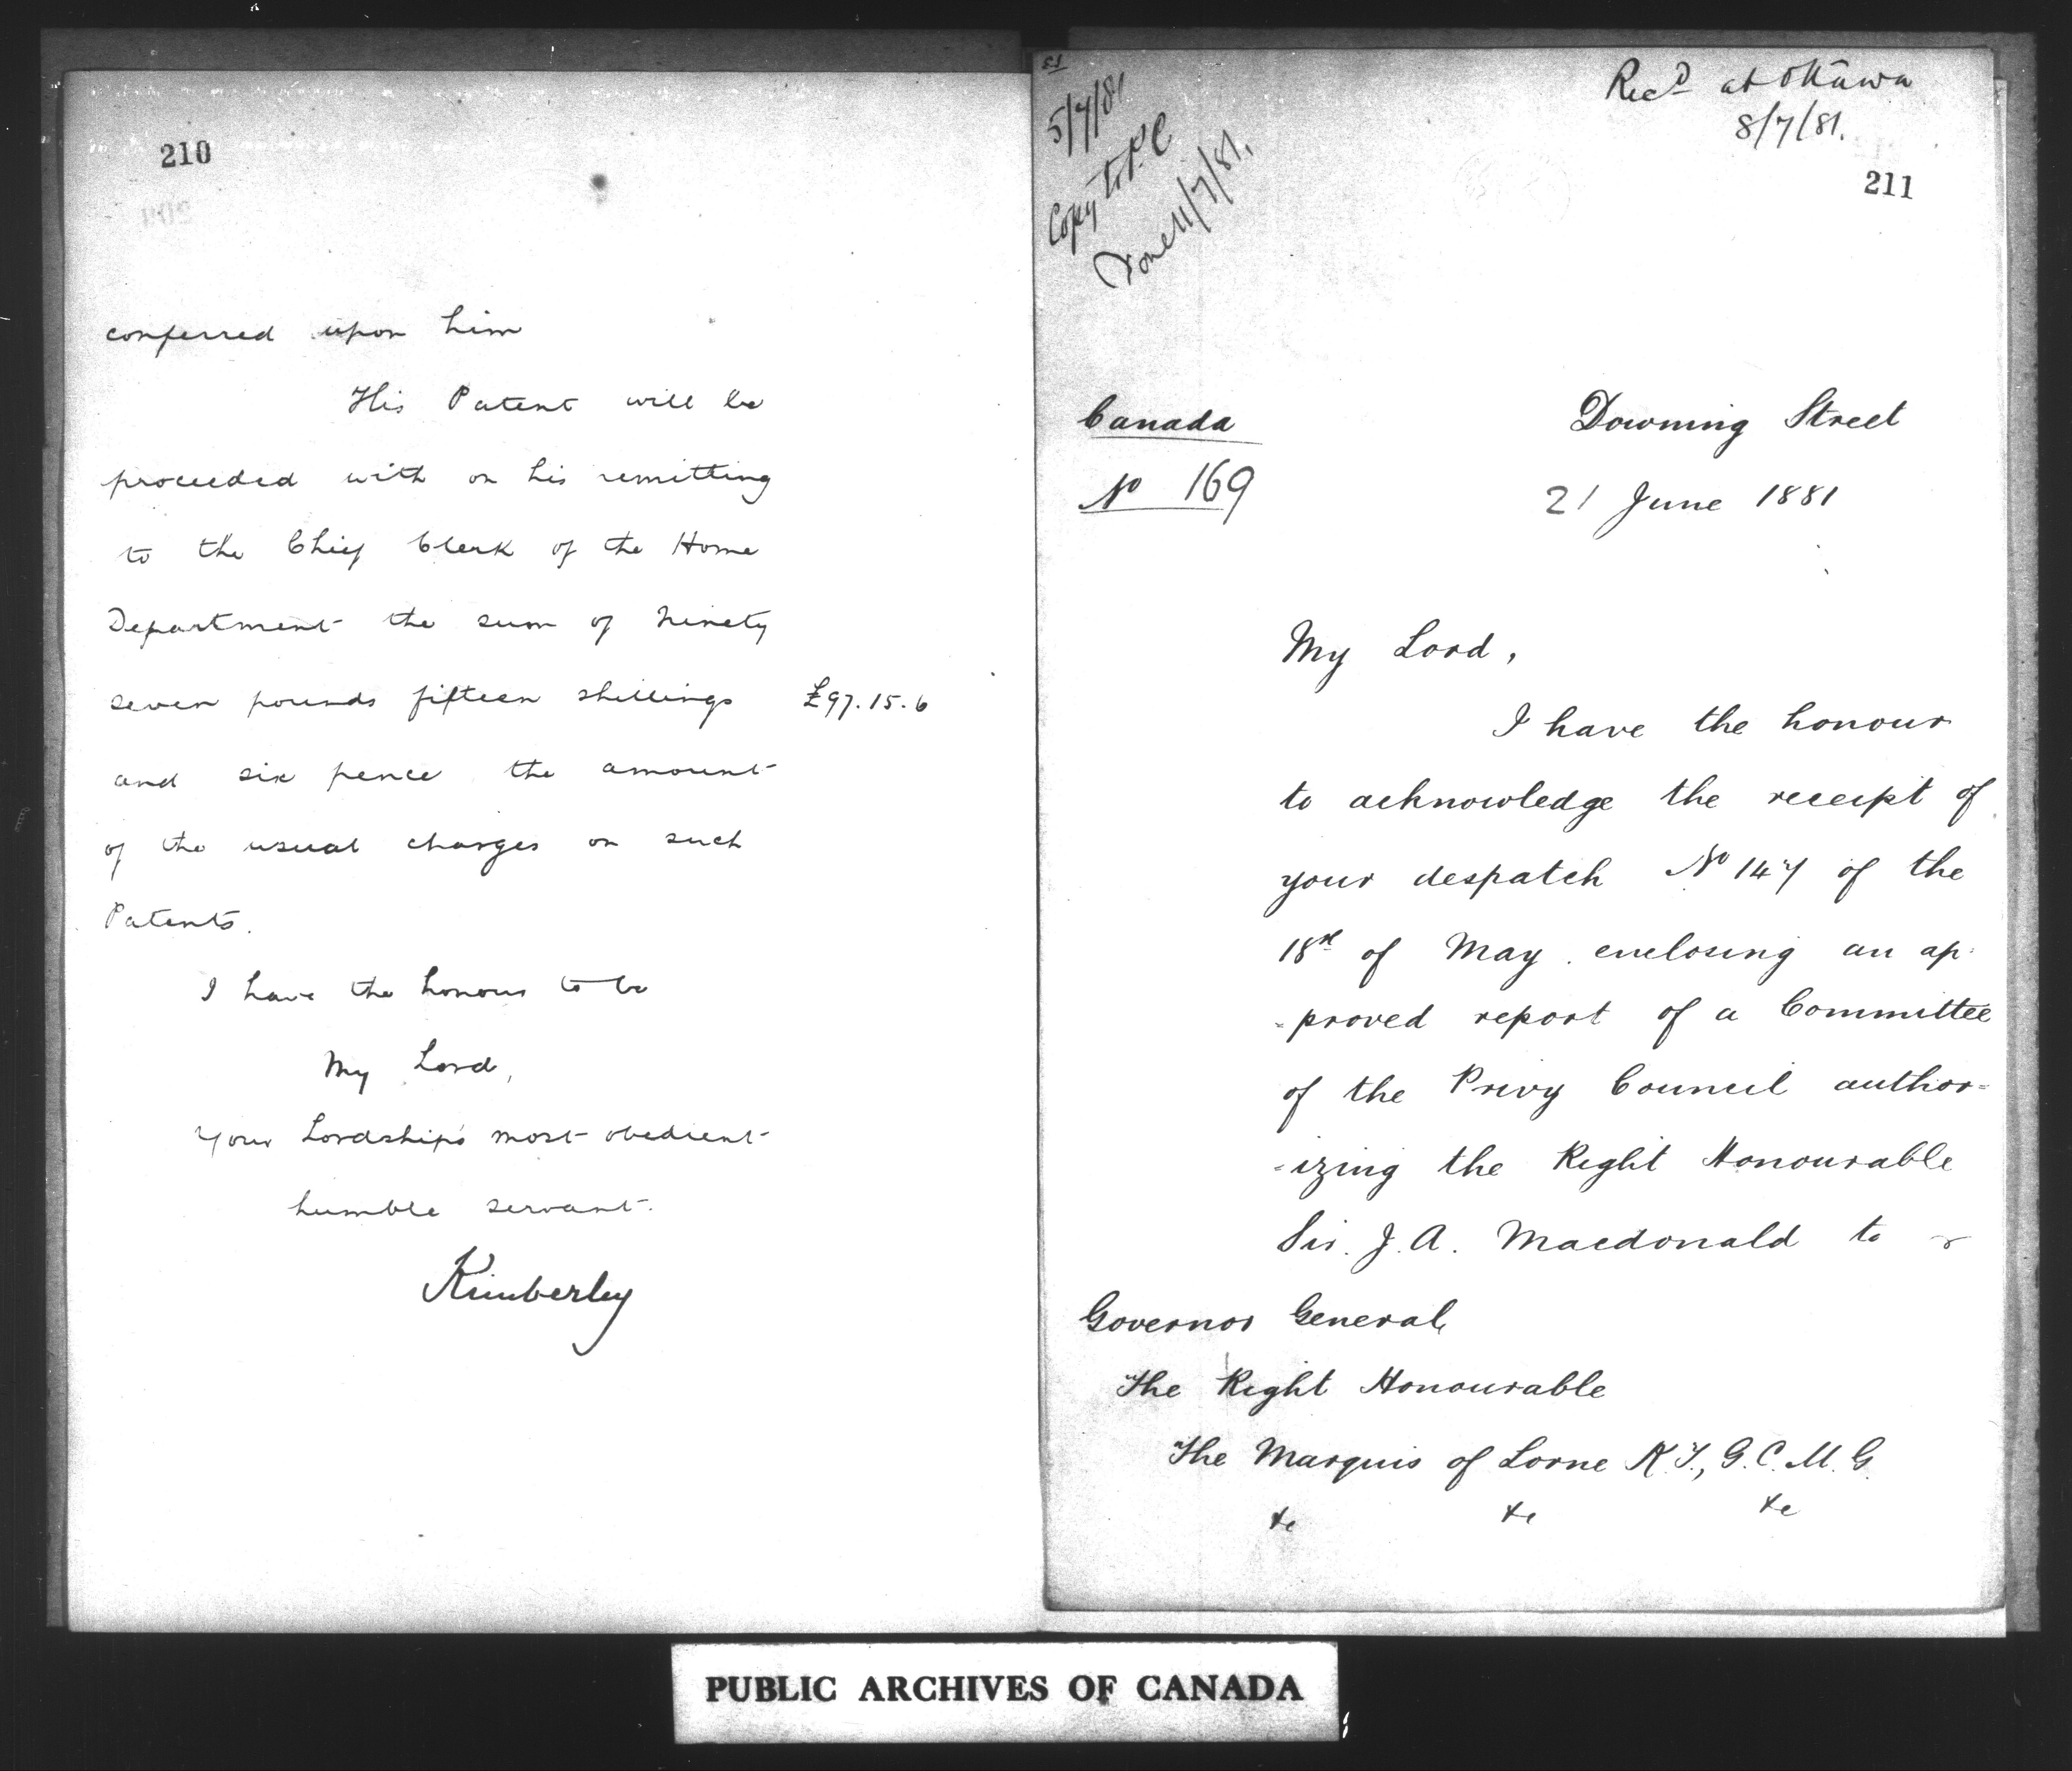 210
conferred upon him
His Patent will be
proceeded with on his remitting
to the Chief Clerk of the Home
Department the sum of Ninety
seven pounds fifteen shillings £97.15.6
and six pence the amount
of the usual charges on such
Patents.
I have the honour to be
My Lord,
Your Lordship's most obedient
humble servant.
Kimberley
5/7/81
Copy to P.C
Done 11/7/81.
Recd at Ottawa
8/7/81.
211
Canada
No 169
Downing Street
21 June 1881
My Lord,
I have the honour
to acknowledge the receipt of
your despatch No 147 of the
18th of May enclosing an ap-
-proved report of a Committee
of the Privy Council author=
-izing the Right Honourable
Sir. J. A. Macdonald to
Governor General,
The Right Honourable
The Marquis of Lorne K.T., G.C.M.G.
&c &c &c
PUBLIC ARCHIVES OF CANADA